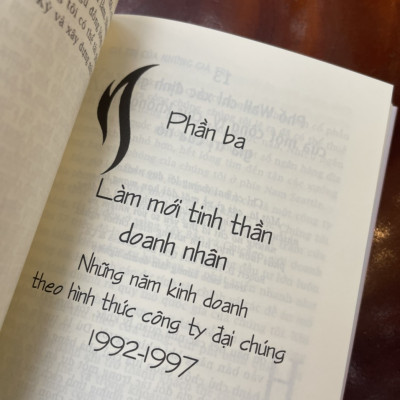 Phần ba
Làm mới tinh thần
doanh nhân
Những năm kinh doanh
theo hình thức công ty đại chúng
1992-1997